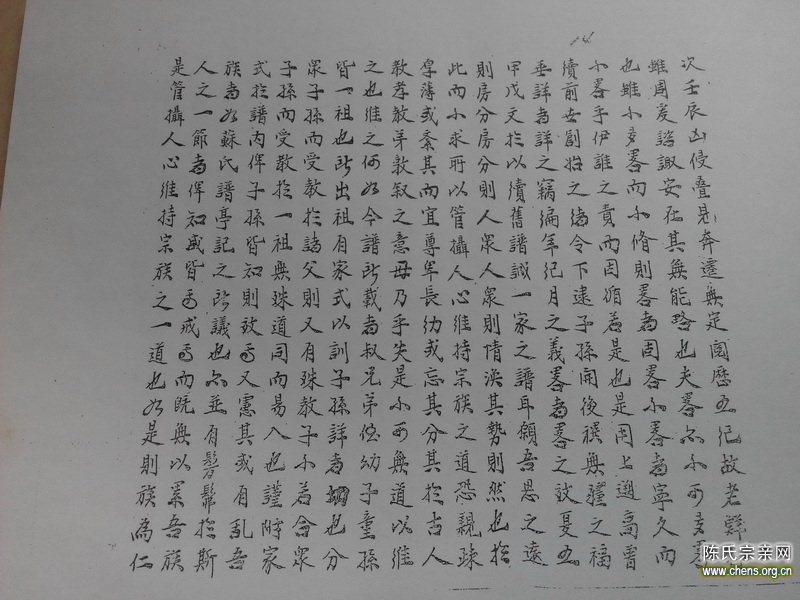 14
次壬辰凶侵疊見奔遷無定閱歷五紀故老
雖周爰諮諏安在其無能略也夫畧亦不可多畧
也雖小多畧而不脩則畧者因畧不畧者寧久而
不畧乎伊誰之責而因循若是也是用上遡高曾
續前世創始之緒令下逮子孫開後禩無疆之福
垂詳者詳之竊編年紀月之義畧者畧之效夏五
甲戊文於以續舊譜誠一家之譜耳顧吾思之遠
則房分房分則人眾人眾則情渙其勢則然也於
此而不求所以管攝人心維持宗族之道恐親疎
厚薄或紊其而宜尊卑長幼或忘其分其於古人
教孝教弟敦敘之意毋乃乎失是不可無道以維
之也維之何如今譜所載者叔兄弟侄幼子童孫
皆一祖也所出祖有家式以訓子孫詳者也分
眾子孫而受教於諸父則又有殊教子不若合眾
子孫而受教於一祖無殊道同而易入也謹附家
式於譜內俾子孫皆知則效焉又憲其或有乱吾
族者如蘇氏譜亭記之所議也亦並有髣髴於斯
人之一節者俾知感皆焉戒焉而既無以累吾族
是管攝人心維持宗族之一道也如是則族為仁
陈氏宗亲网
www.chens.org.cn